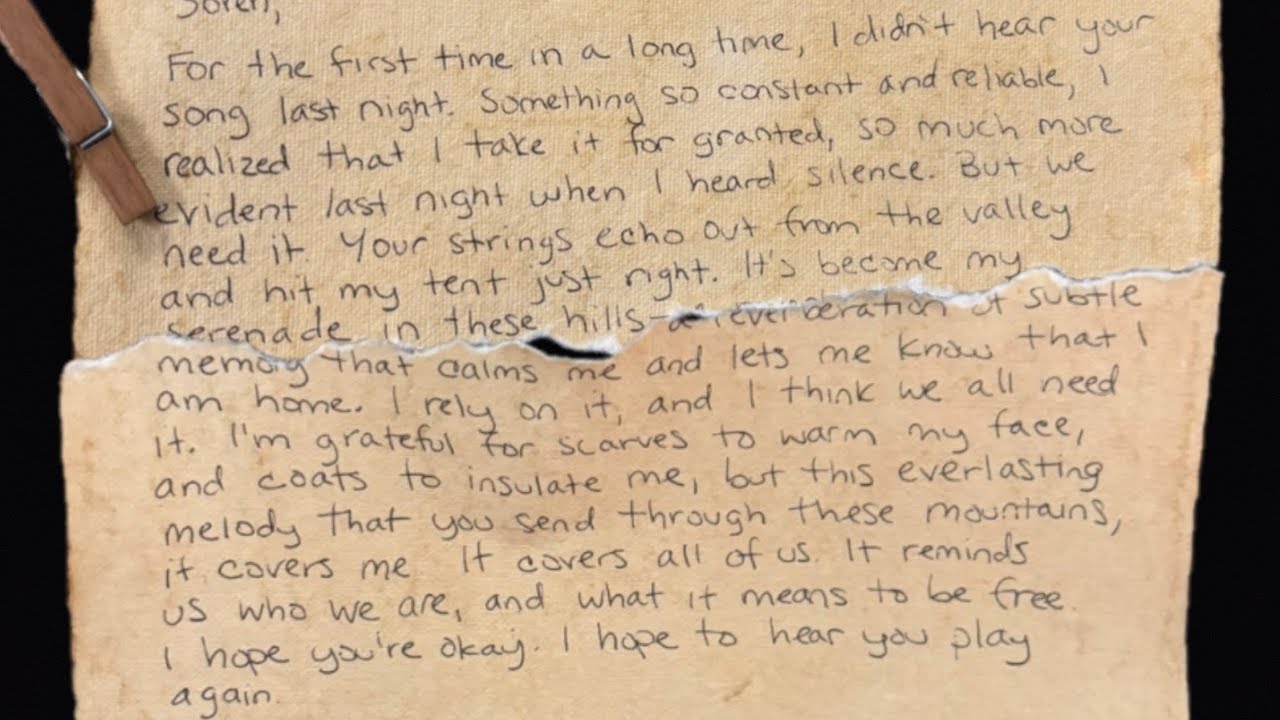 Soren,
For the first time in a long time, I didn't hear your
song last night. Something so constant and reliable, I
realized that I take it for granted, so much more
evident last night when I heard silence. But we
need it. Your strings echo out from the valley
and hit my tent just right. It's become my
serenade in these hills-a reverberation of subtle
memory that calms me and lets me know that I
am home. I rely on it, and I think we all need
it. I'm grateful for scarves to warm my face,
and coats to insulate me, but this everlasting
melody that you send through these mountains,
it covers me It covers all of us. It reminds
us who we are, and what it means to be free.
I hope you're okay. I hope to hear you play
again.